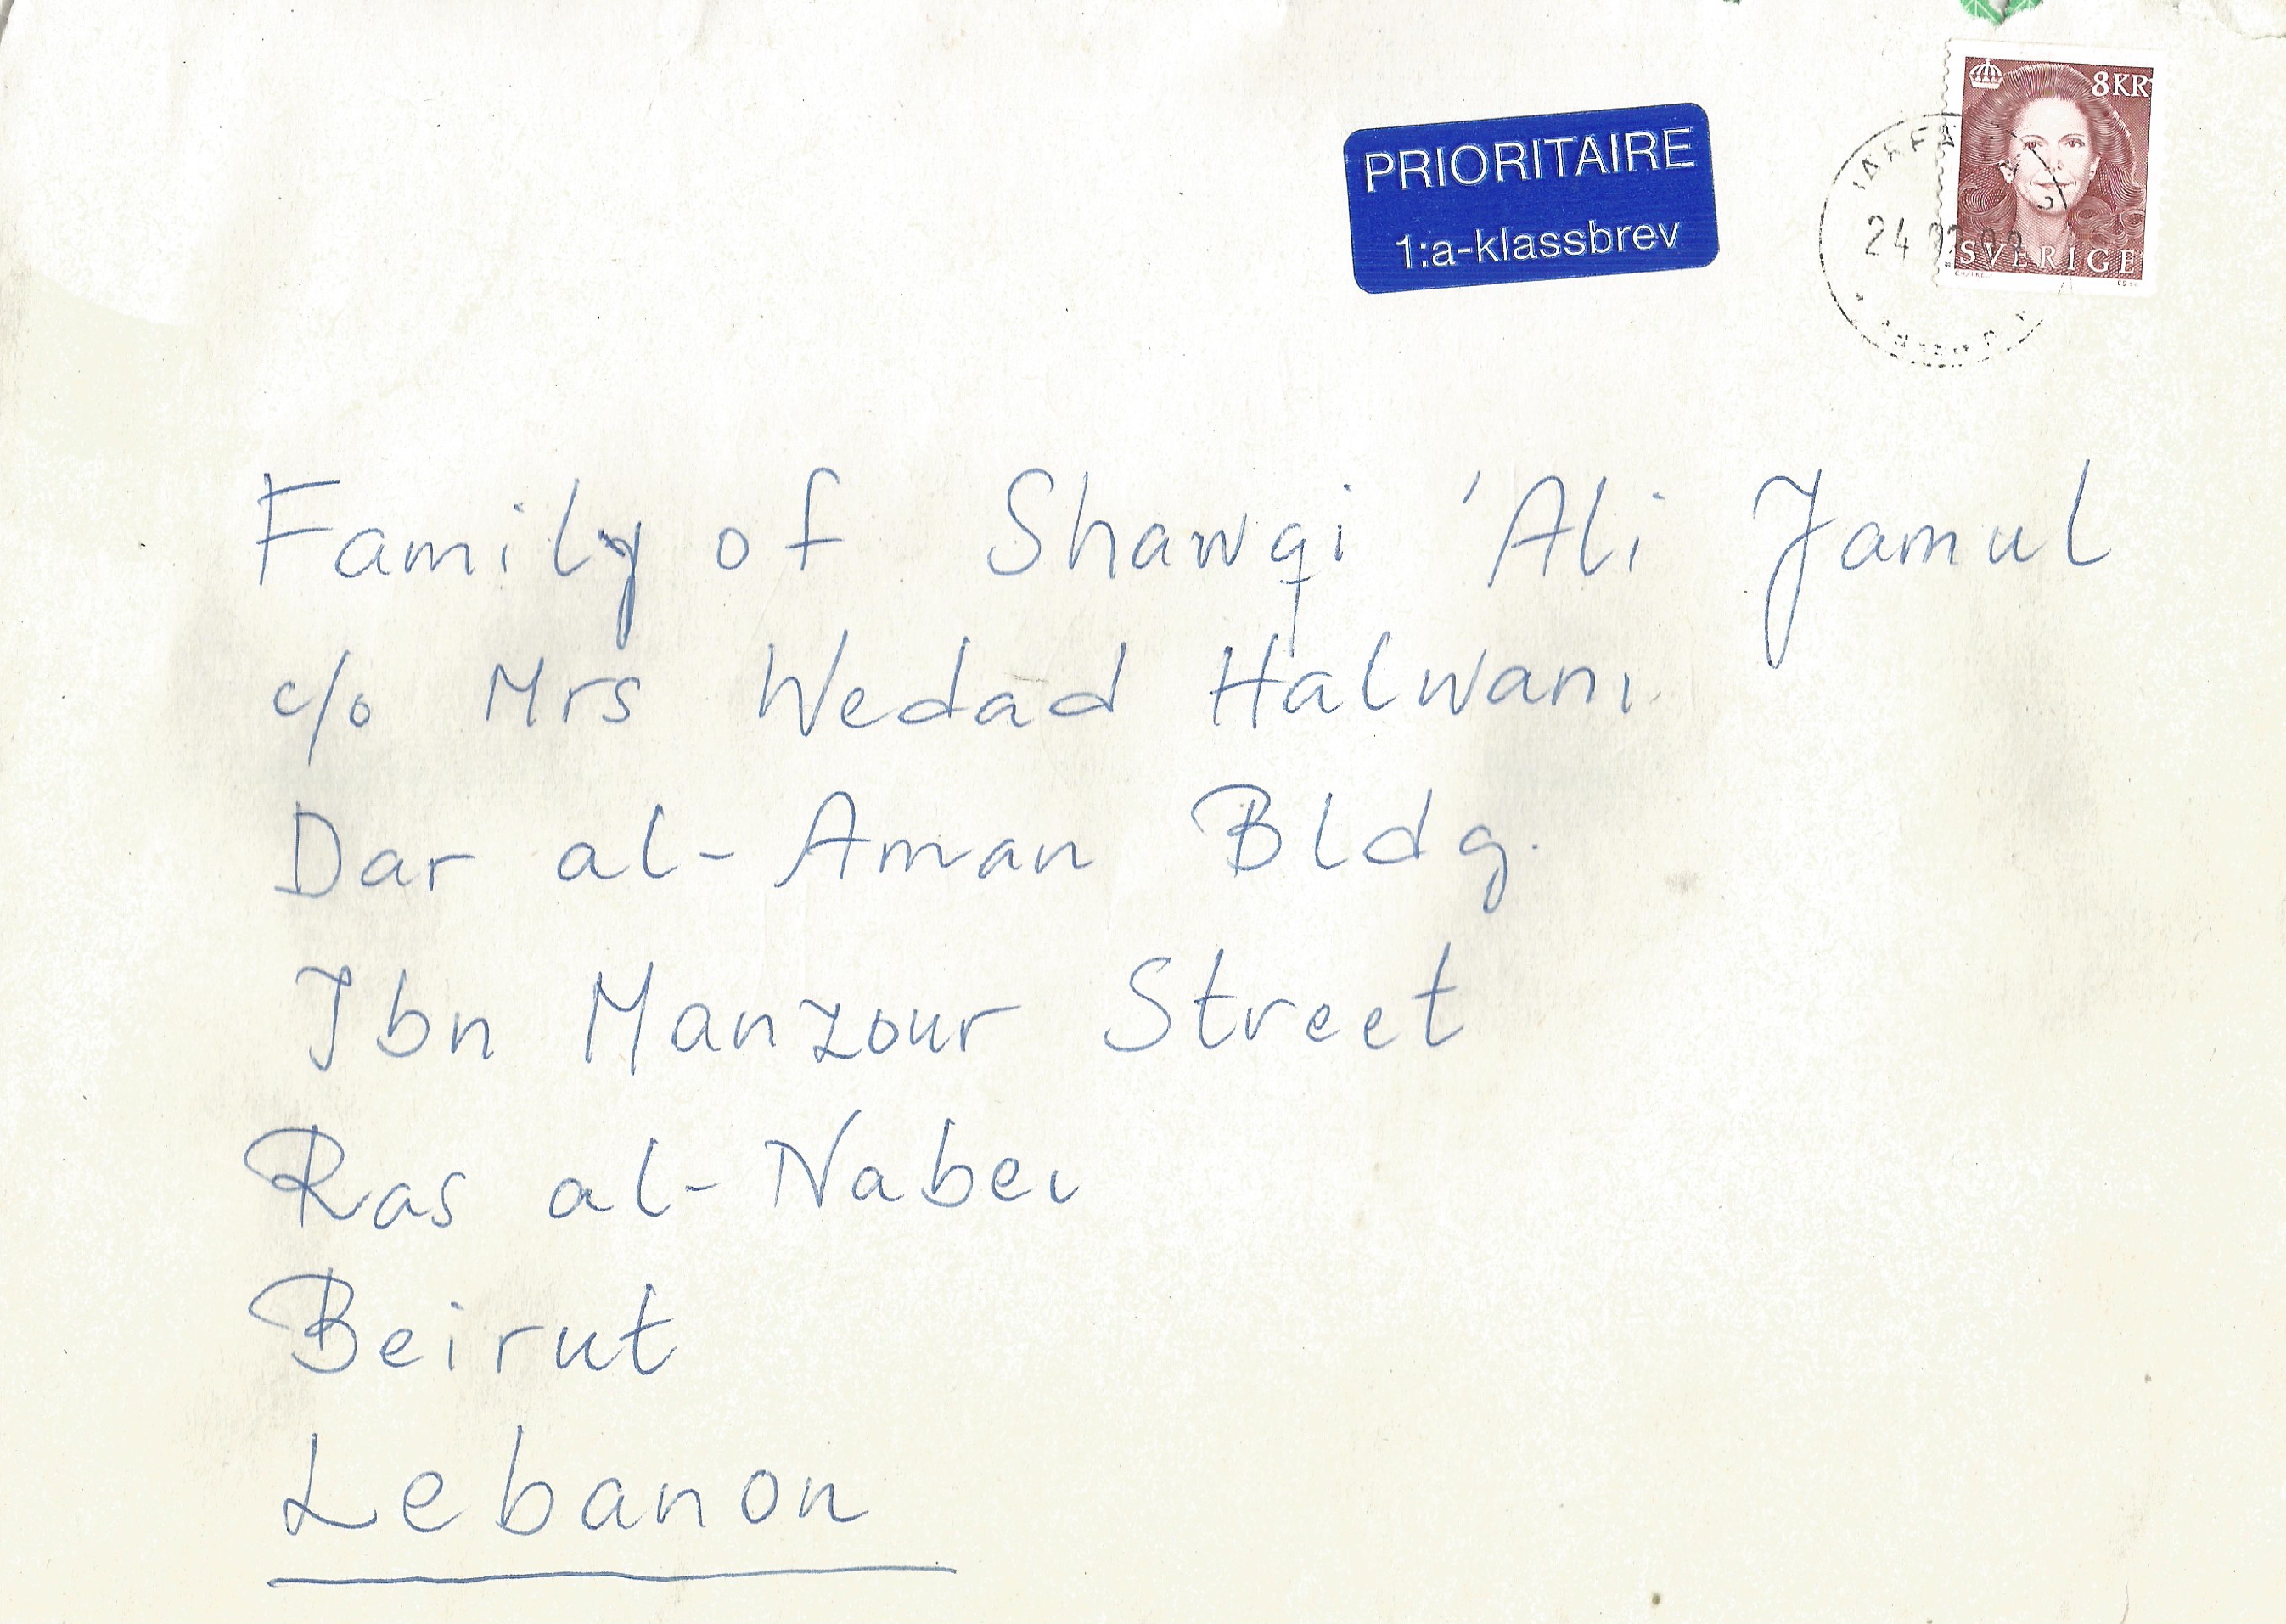 8KR
PRIORITAIRE
1:a-klassbrev
24
SVERIGE
Family of Shawqi 'Ali Jamul
c/o Mrs Wedad Halwani
Dar al-Aman Bldg.
Ibn Manzour Street
Ras al-Nabei
Beirut
Lebanon